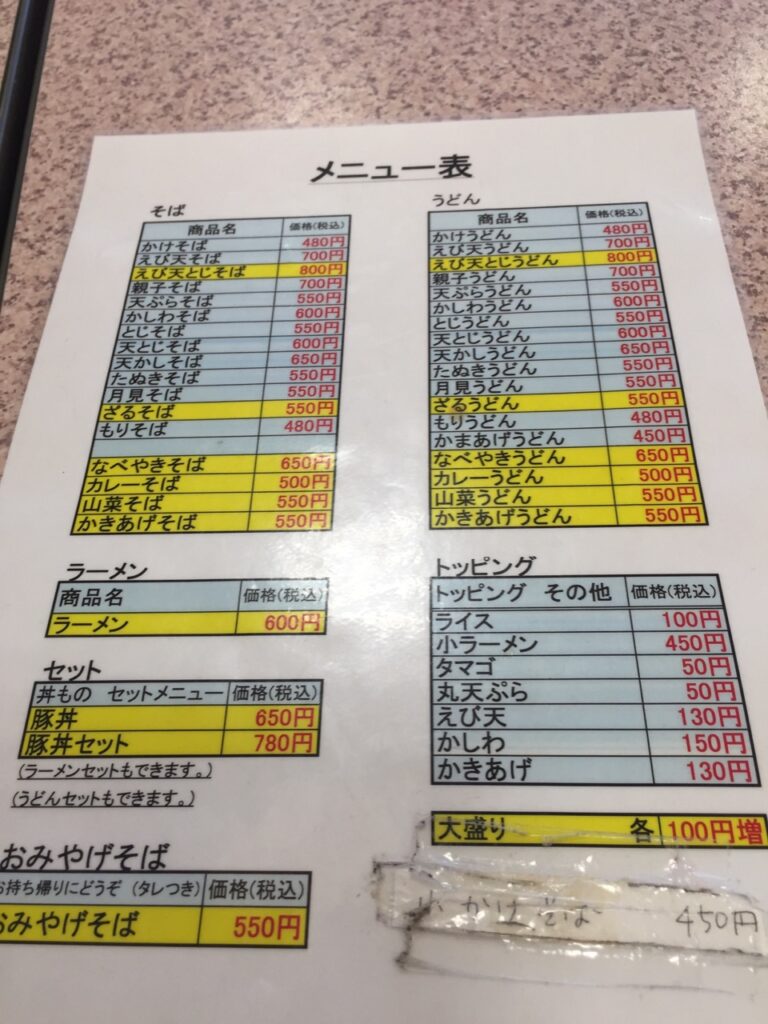 メニュー表
そば
商品名 価格(税込)
かけそば 480円
えび天そば 700円
えび天とじそば 800円
親子そば 700円
天ぷらそば 550円
かしわそば 600円
とじそば 550円
天とじそば 600円
天かしそば 650円
たぬきそば 550円
月見そば 550円
ざるそば 550円
もりそば 480円
なべやきそば 650円
カレーそば 500円
山菜そば 550円
かきあげそば 550円
うどん
商品名 価格(税込)
かけうどん 480円
えび天うどん 700円
えび天とじうどん 800円
親子うどん 700円
天ぷらうどん 550円
かしわうどん 600円
とじうどん 550円
天とじうどん 600円
天かしうどん 650円
たぬきうどん 550円
月見うどん 550円
ざるうどん 550円
もりうどん 480円
かまあげうどん 450円
なべやきうどん 650円
カレーうどん 500円
山菜うどん 550円
かきあげうどん 550円
ラーメン
商品名 価格(税込)
ラーメン 600円
セット
丼もの セットメニュー 価格(税込)
豚丼 650円
豚丼セット 780円
(ラーメンセットもできます。)
(うどんセットもできます。)
おみやげそば
お持ち帰りにどうぞ (タレつき) 価格(税込)
おみやげそば 550円
トッピング
トッピング その他 価格(税込)
ライス 100円
小ラーメン 450円
タマゴ 50円
丸天ぷら 50円
えび天 130円
かしわ 150円
かきあげ 130円
大盛り 各 100円増
小かけそば 450円